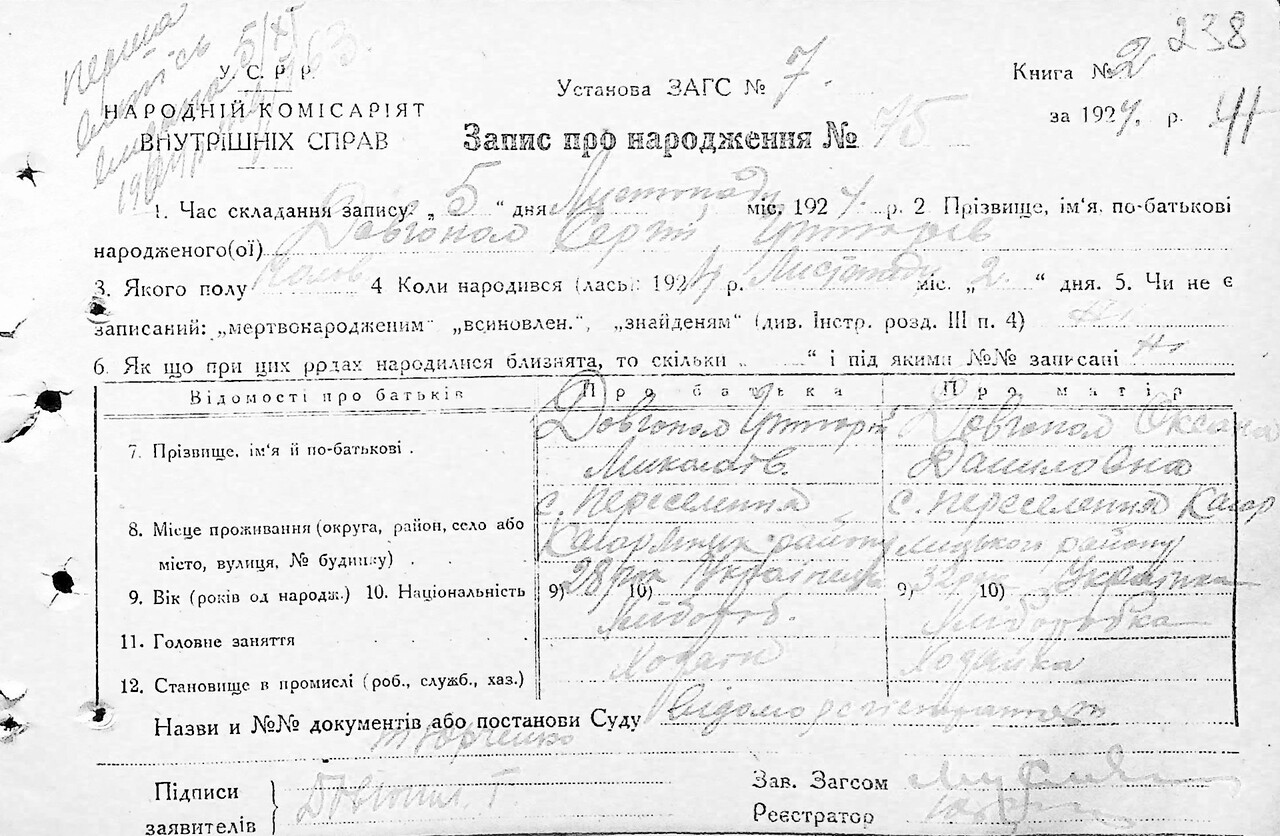 перша
238
У. С. Р. Р.
НАРОДНІЙ КОМІСАРІЯТ
ВНУТРІШНІХ СПРАВ
Установа ЗАГС № 7.
Книга № 2
за 1924. р. 41
Запис про народження № 75
1. Час складання запису: „ 5 “ дня Листопаду міс. 1924. р. 2 Прізвище, ім‘я. по-батькові
народженого(ої) Довгопол Сергій
3. Якого полу 4 Коли народився (лась): 1924 р. Листопаду міс. „ 2. “ дня. 5. Чи не є
записаний: „мертвонародженим“ „всиновлен.“, „знайденям“ (див. Інстр. розд. III п. 4) Ні
6. Як що при цих родах народилися близнята, то скільки „ “ і під якими №№ записані Ні
Відомості про батьків Про батька Про матір
7. Прізвище, ім‘я й по-батькові . Довгопол Григорій Довгопол Оксана
Миколаїв. Даниловна
8. Місце проживання (округа, район, село або с. Переселення с. Переселення Кагар
місто, вулиця, № будинку) Кагарлицк. району лицького району
9. Вік (років од народж.) 10. Національність 9) 28 рок 10) Українець 9) 32 рок 10) Українка
11. Головне заняття Хлібороб. Хліборобка
12. Становище в промислі (роб., служб., хаз.) Хозяїн Хозяйка
Назви и №№ документів або постанови Суду Відомо регістратат
Підписи
заявителів
Довгопол. Г.
Зав. Загсом
Реєстратор